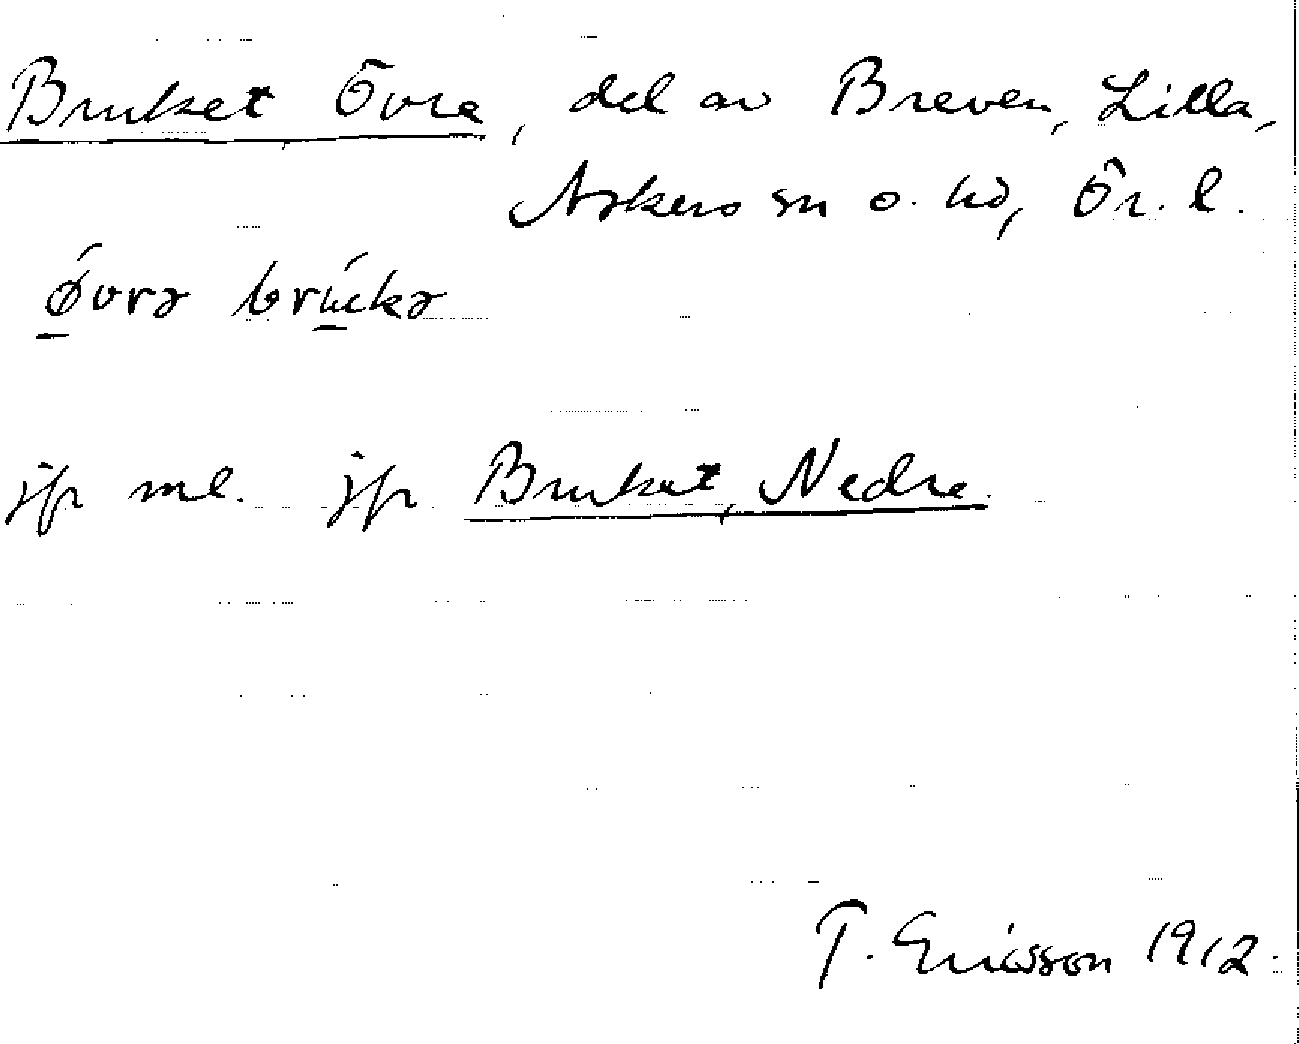 Bruket, Övre, del av Breven, Lilla,
Askers sn o. hd, Ör. l.
övrə brückə
jfr ml. jfr Bruket, Nedre.
T. Ericsson 1912.